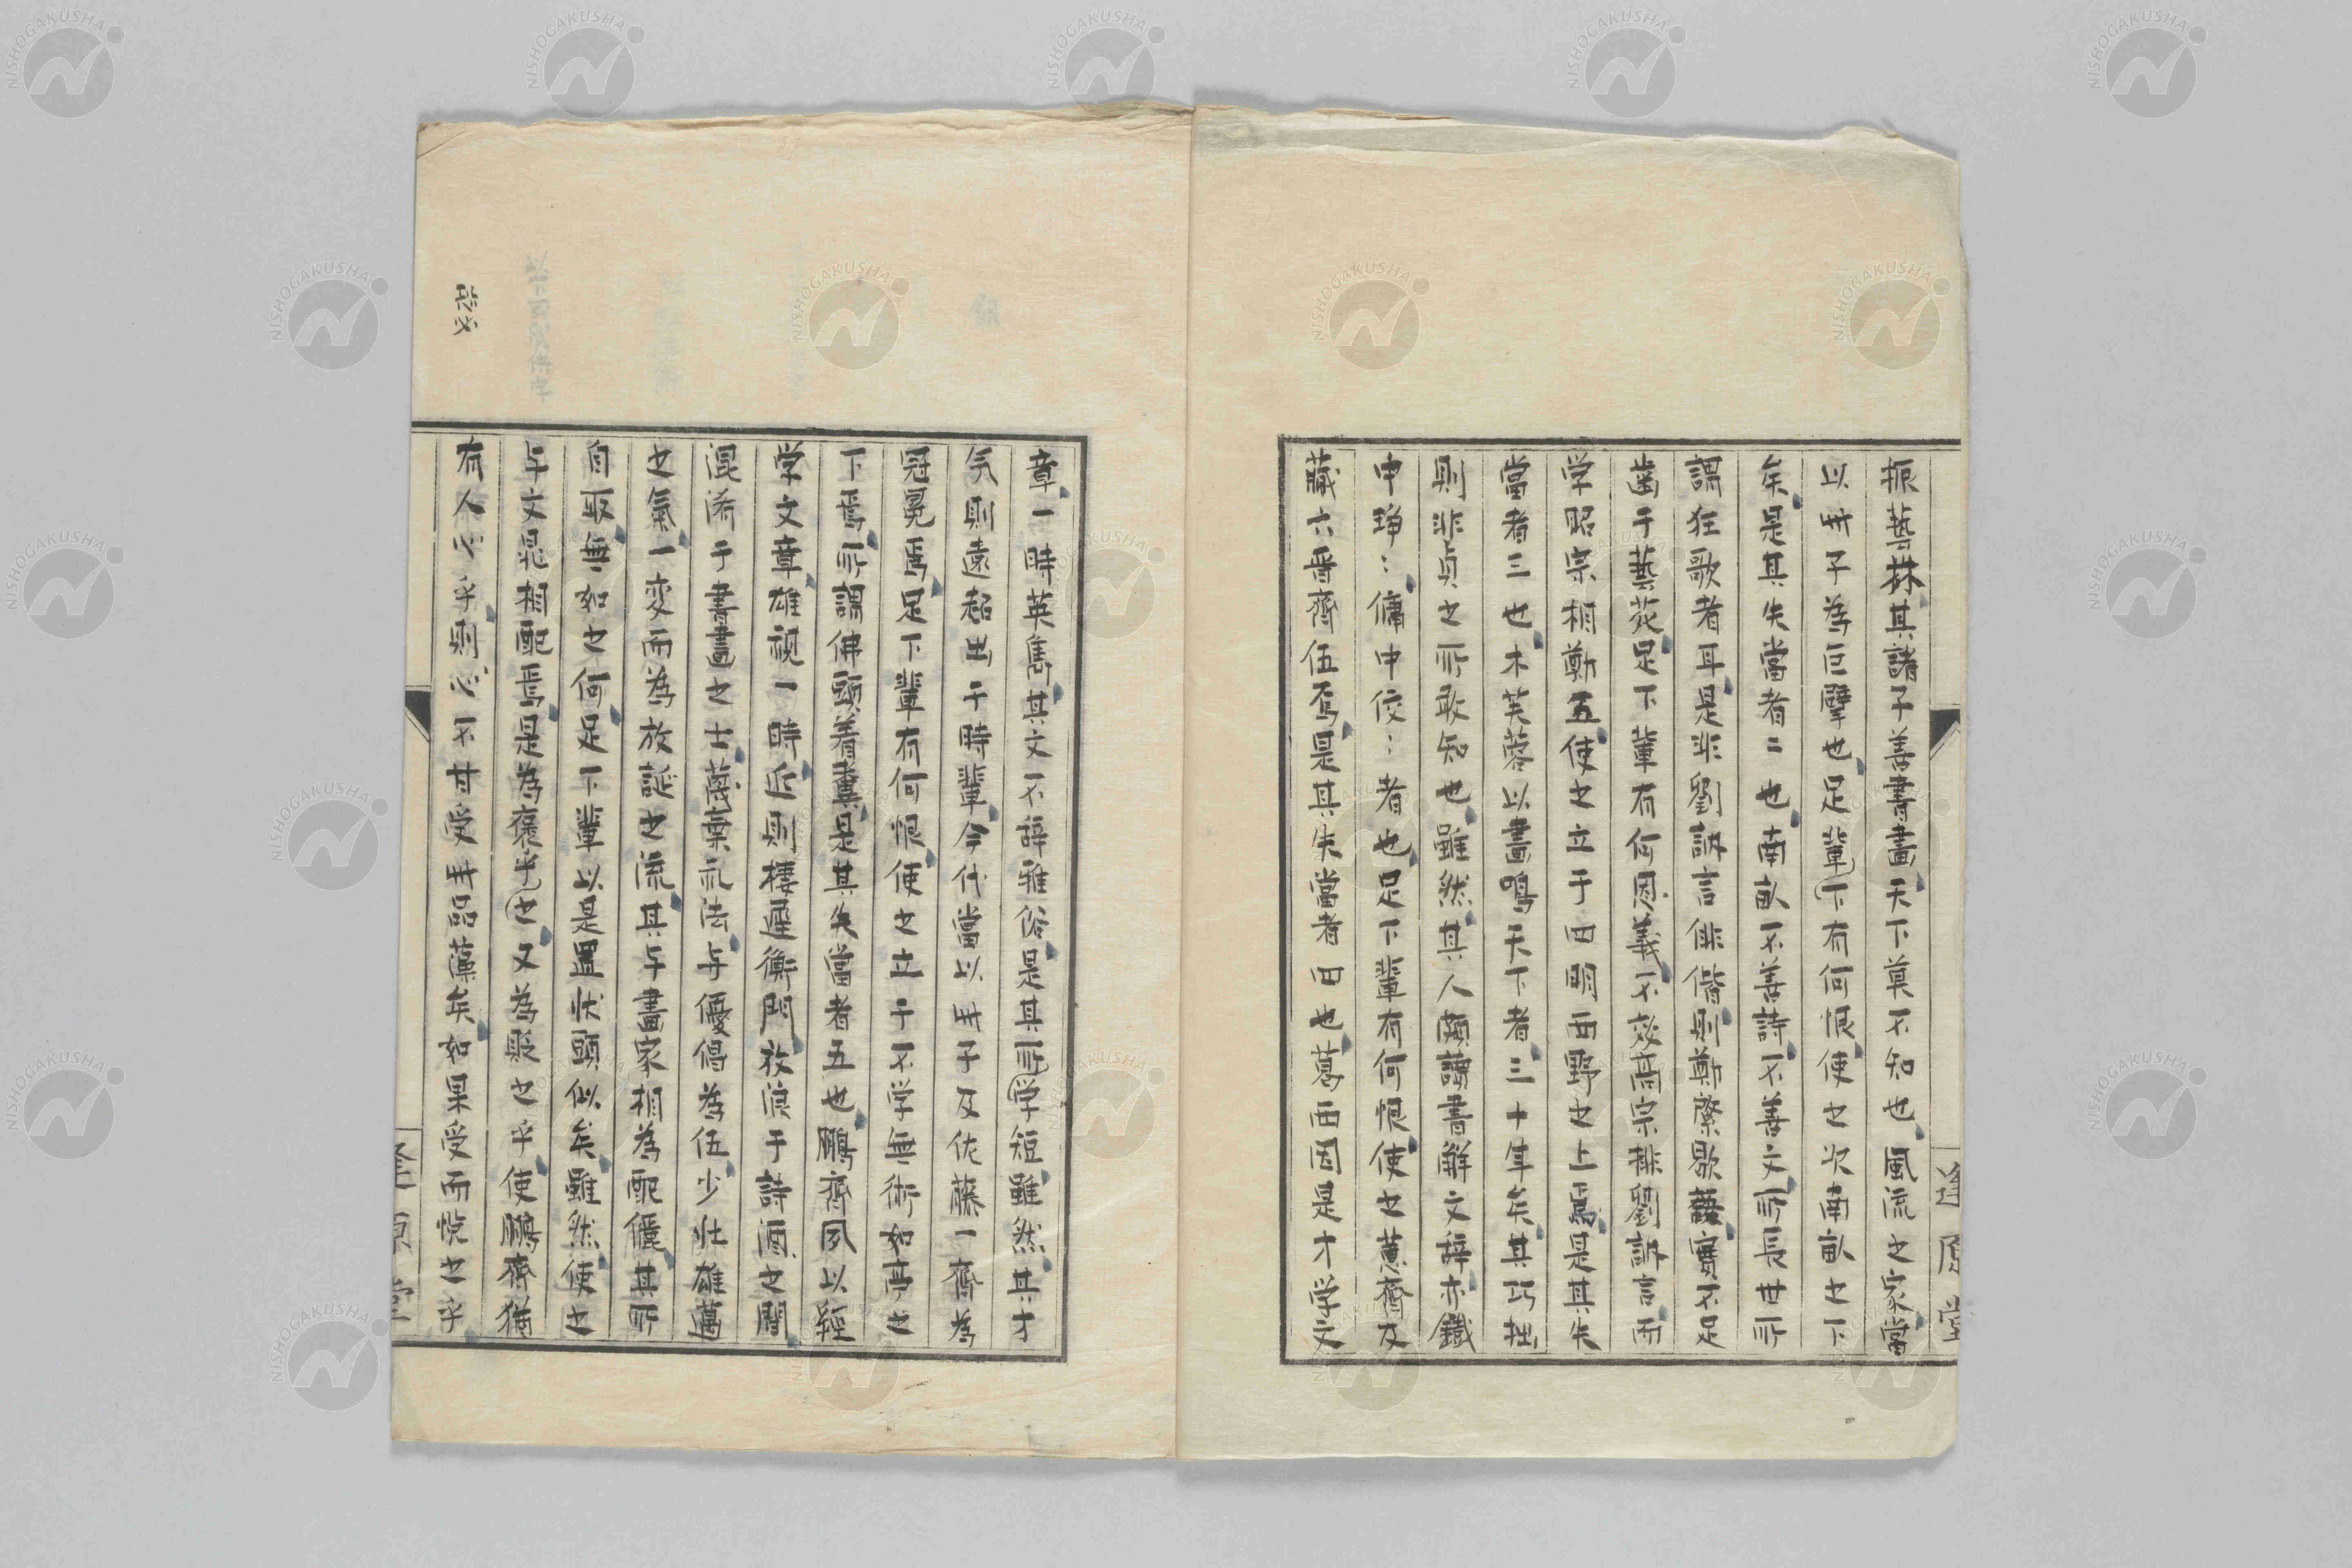 振藝林其諸子善書畫天下莫不知也風流之家當
以此子為巨擘也足輩下有何恨使之次南畝之下
矣是其失當者二也南畝不善詩不善文所長世所
謂狂歌者耳是非劉訥言俳偕則鄭綮歇 實不足
歯于藝苑足下輩有何恩義不效高宗排劉訥言而
学昭宗相鄭五使之立于四明西野之上焉是其失
當者三也木芙蓉以畫鳴天下者三十年矣其巧拙
則非貞之所敢知也雖然其人頗讀書解文辞亦鐵
中琤〻傭中佼〻者也足下輩有何恨使之蕙齋及
藏六晋齋伍焉是其失當者四也葛西因是才学文
章一時英雋其文不辞雅俗是其所学短雖然其才
氣則遠超出于時輩今代當以此子及佐藤一齋為
冠冕焉足下輩有何恨使之立于不学無術如亭之
下焉所謂佛頭着糞是其失當者五也鵬齋夙以経
学文章雄視一時近則棲遲衡門放浪于詩酒之間
混淆于書畫之士蔑棄礼法与優倡為伍少壮雄邁
之氣一変而為放誕之流其与畫家相為配儷其所
自取無如之何足下輩以是置状頭似矣雖然使之
与文晁相配焉是為褒乎之又為貶之乎使鵬齋猶
有人心乎則必不甘受此品藻矣如果受而悦之乎
逢原堂
逢原堂